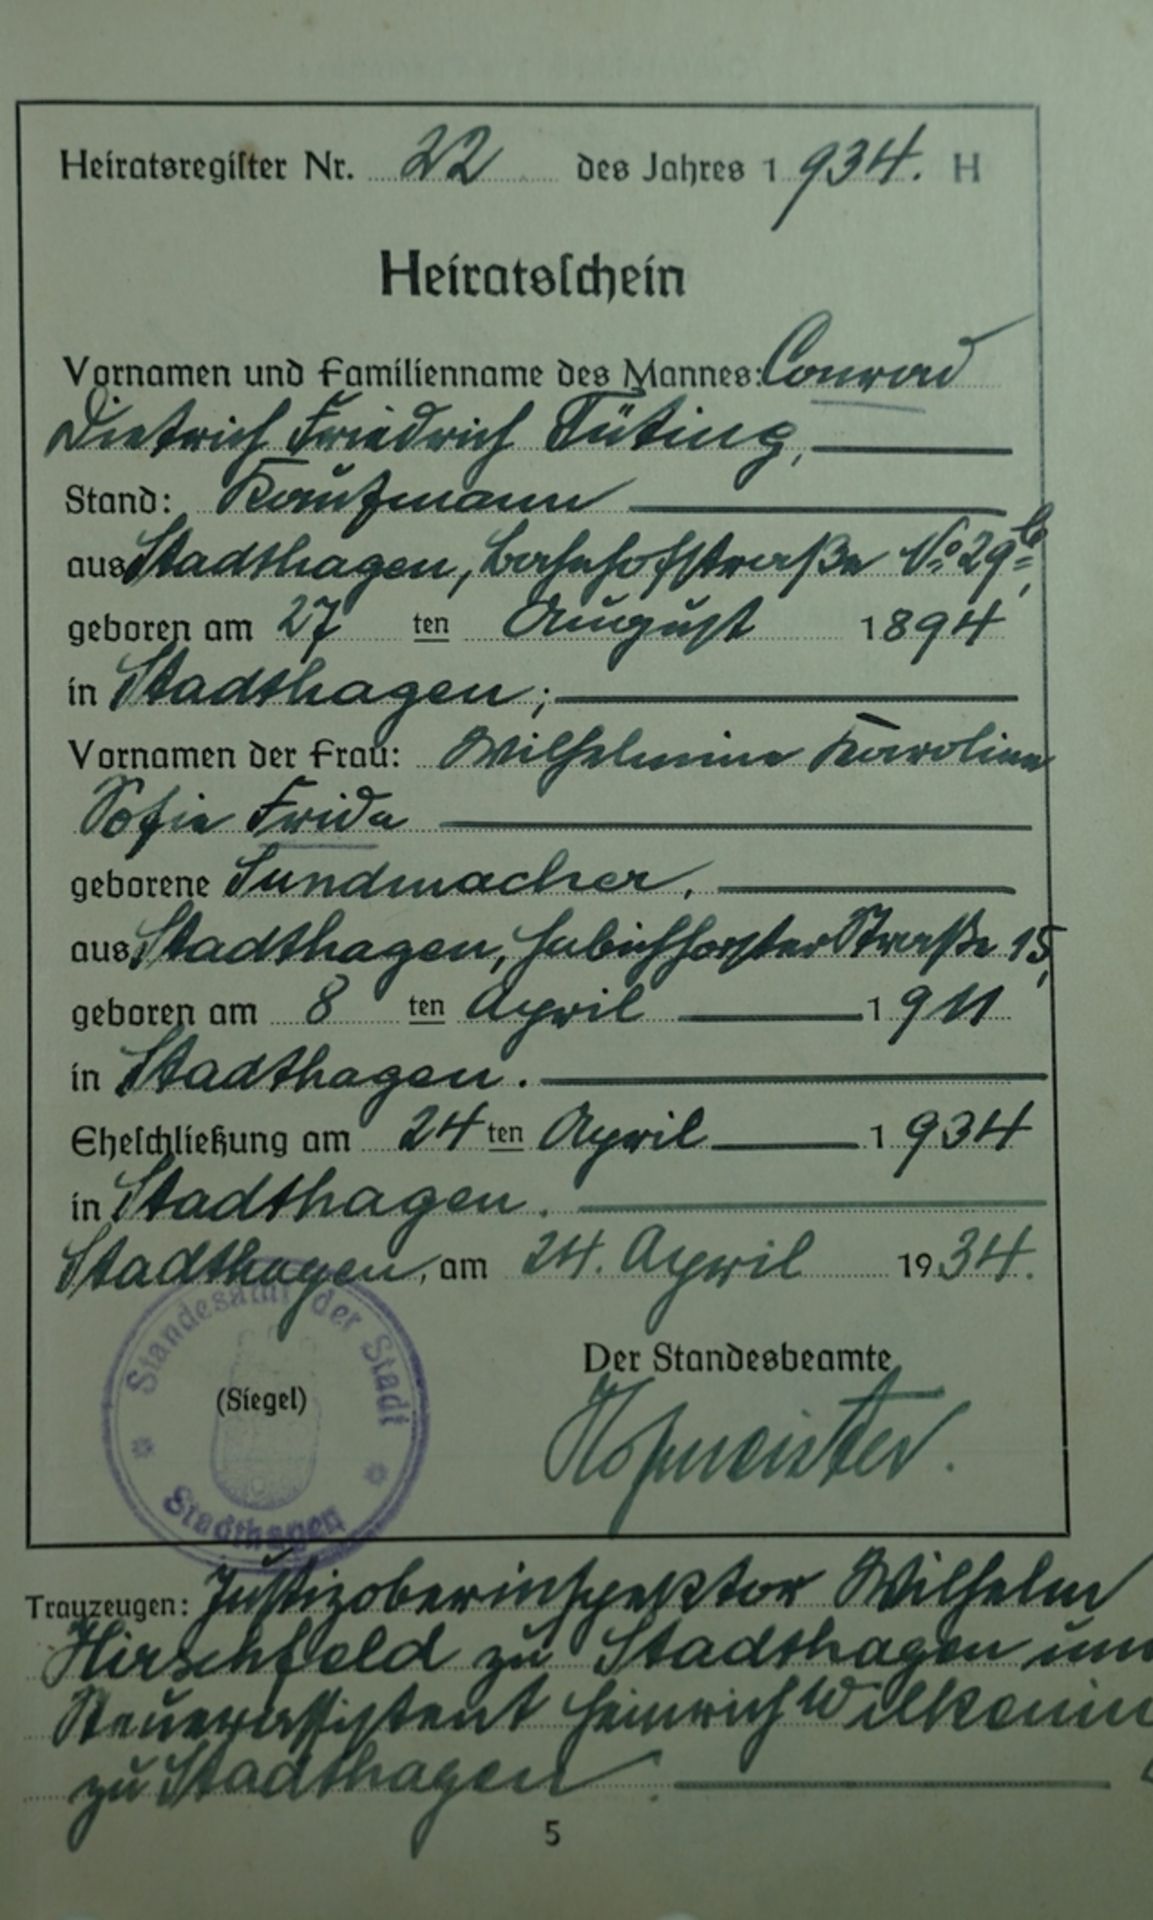 Heiratsregister Nr. 22 des Jahres 1934. H
Heiratsschein
Vornamen und Familienname des Mannes: Conrad
Dietrich Friedrich Tüting,
Stand: Kaufmann
aus Stadthagen, Bahnhofstraße No. 29b,
geboren am 27 ten August 1894
in Stadthagen;
Vornamen der Frau: Wilhelmine Karoline
Sofie Frida
geborene Sundmacher,
aus Stadthagen, Habichhorster Straße 15,
geboren am 8 ten April 1911
in Stadthagen.
Eheschließung am 24 ten April 1934
in Stadthagen.
Stadthagen, am 24. April 1934.
Der Standesbeamte
(Siegel)
Standesamt der Stadt
Stadthagen
Hofmeister.
Trauzeugen: Justizoberinspektor Wilhelm
Hirschfeld zu Stadthagen und
Steuerassistent Heinrich
zu Stadthagen.
5